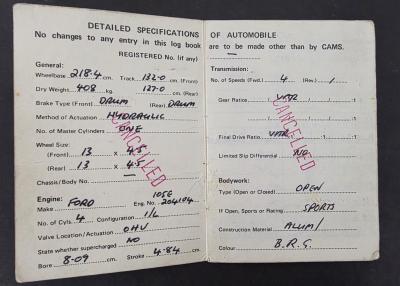 DETAILED SPECIFICATIONS
No changes to any entry in this log book
REGISTERED No. (if any)
General:
Wheelbase 218.4 cm. Track 132.0 cm. (Front)
Dry Weight 408 kg. 127.0 cm. (Rear)
Brake Type (Front) DRUM (Rear) DRUM
Method of Actuation HYDRAULIC
No. of Master Cylinders ONE
Wheel Size:
(Front) 13 X 4.5
(Rear) 13 X 4.5
CANCELLED
Chassis/Body No. —
Engine: 105E
Make FORD Eng. No. 204194
No. of Cyls. 4 Configuration I/L
Valve Location/Actuation OHV
State whether supercharged NO
Bore 8.09 cm. Stroke 4.84 cm.
OF AUTOMOBILE
are to be made other than by CAMS.
Transmission:
No. of Speeds (Fwd.) 4 (Rev.) 1
Gear Ratios VAR / / / :1
/ / / :1
Final Drive Ratio VAR :1 / :1
CANCELLED
Limited Slip Differential NO
Bodywork:
Type (Open or Closed) OPEN
If Open, Sports or Racing SPORTS
Construction Material ALUM/
Colour B.R.G.